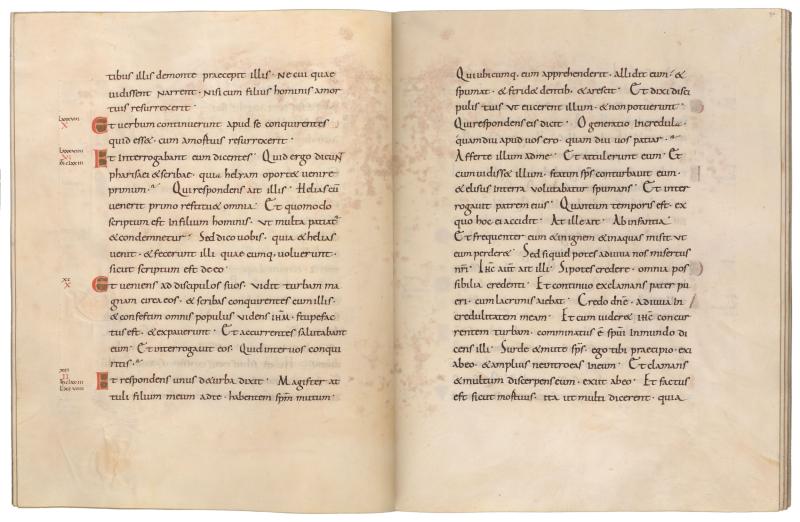 tibus illis demonte praecepit illis · Ne cui quae
uidissent narrent · Nisi cum filius hominis amor
tuis resurrexerit ·
Et verbum continuerunt apud se conquirentes
quid ess& · cum amortuis resurrexerit ·
Et interrogabant eum dicentes · Quid ergo dicuN
pharisaei &scribae · quia heliam oport& venire
primum · Qui respondens ait illis · Helias cū
venerit primo restitu& omnia · Et quomodo
scriptum est in filium hominis · ut multa patiat
&condemnetur · Sed dico uobis · quia &helias
venit · &fecerunt illi quae cumq, voluerunt ·
sicut scriptum est de eo ·
xc
X
Et veniens ad discipulos suos · vidit turbam ma
gnam circa eos · &scribas conquirentes cum illis ·
&confestim omnis populus videns ihm̄ · stupefac
tus est · &expauerunt · Et accurrentes salutabant
eum · Et interrogauit eos · Quid inter uos conqui
ritis ·
xci
II
Et respondens unus de turba dixit · Magister at
tuli filium meum adte · habentem sp̄m mutum ·
Qui ubicumq, eum apprehenderit · allidit eum · &
spumat · &strid& dentib; &arescit · Et dixi disci
pulis tuis ut eicerent illum · &non potuerunt ·
Qui respondens eis dicit · O generatio incredula ·
quamdiu apud uos ero · quam diu vos patiar ·
Afferte illum adme · Et attulerunt eum · Et
cum uidisset illum · statim sp̄s conturbauit eum ·
&elisus interra volutabatur spumans · Et inter
rogauit patrem eius · Quantum temporis est · ex
quo hoc ei accidit · At ille ait · Ab infantia ·
Et frequenter eum &inignem &inaquas misit ut
eum perder& · Sed si quid potes adiuua nos misertus
nr̄i · ihc̄ aut̄ ait illi · Si potes credere · omnia pos
sibilia credenti · Et continuo exclamans pater pu
eri · cum lacrimis aiebat · Credo dn̄e · adiuua in
credulitatem meam · Et cum uider& ihc̄ concur
rentem turbam · comminatus ē sp̄ui inmundo di
cens illi · Surde &mute sp̄s · ego tibi praecipio · exi
abeo · &amplius neintroeas ineum · Et clamans
&multum discerpens eum · exiit abeo · Et factus
est sicut mortuus · ita ut multi dicerent · quia